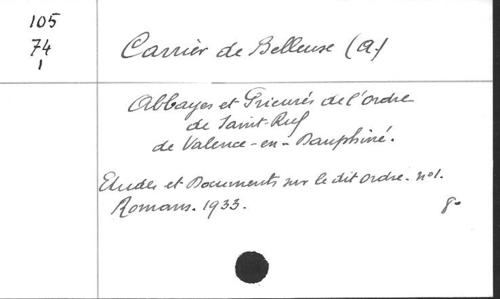 105
74
1
Carrier de Belleuse (A.)
Abbayes et Prieurés de l'ordre
de Saint-Ruf
de Valence-en-Dauphiné.
Etudes et Documents sur le dit ordre. no1.
Romans. 1933. 8o